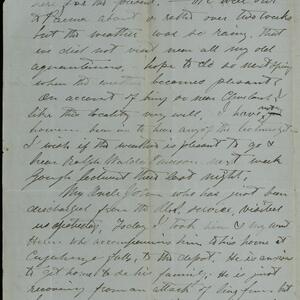 here for the present. We went out
to Parma about a rather over two weeks
but the weather was so rainy, that
we did not visit near all my old
acquaintances, hope to do so next spring
when the weather becomes pleasant.
On account of being so near Cleveland I
like this locality very well. I have not
however been in to hear any of the lectures yet
I wish if the weather is pleasant to go &
hear Ralph Waldo Emerson next week
Gough lectured there last night.
My Uncle who has just been
discharged from the service, visited
us yesterday, Today I took him & my Aunt
who accompanies him to his home at
Cuyahoga falls, to the depot. He is anxious
to get home to his family. He is just
recovering from an attack of lung fever but